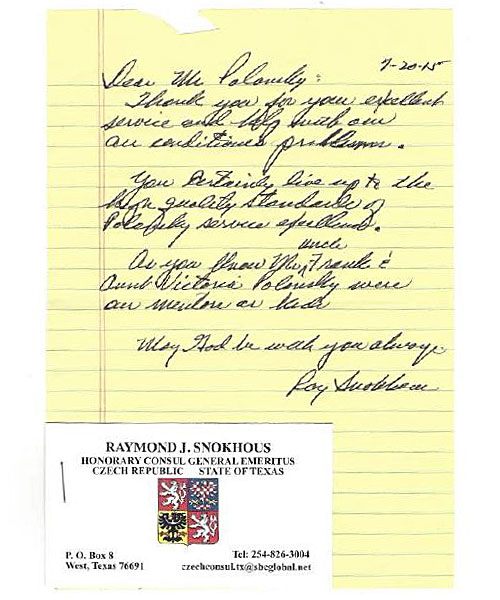 7-20-15
Dear Mr Polansky:
Thank you for your excellent
service and help with our
air conditioner problems.
You certainly live up to the
high quality standards of
Polansky service excellence.
As you know Mr, uncle Frank &
Aunt Victoria Polansky were
our mentors as kids
May God be with you always.
Ray Snokhous
RAYMOND J. SNOKHOUS
HONORARY CONSUL GENERAL EMERITUS
CZECH REPUBLIC STATE OF TEXAS
P. O. Box 8 Tel: 254-826-3004
West, Texas 76691 czechconsul.tx@sbcglobal.net